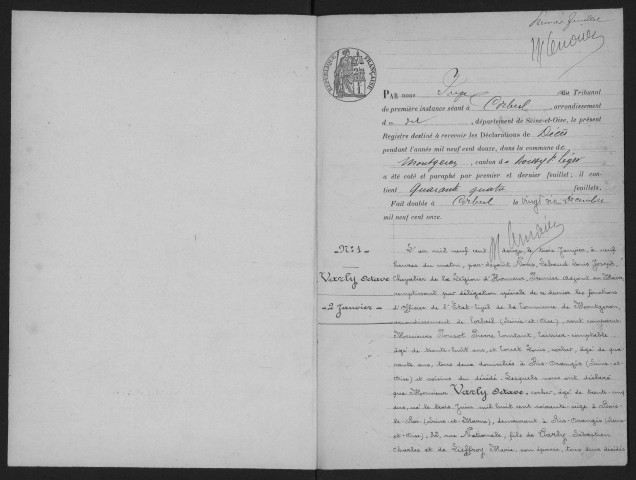 RÉPUBLIQUE FRANÇAISE
PAR nous Juge au Tribunal
de première instance séant à Corbeil, arrondissement
du dit, département de Seine-et-Oise, le présent
Registre destiné à recevoir les Déclarations de Décès
pendant l'année mil neuf cent douze, dans la commune de
Montgeron, canton de Boissy St Léger
a été coté et paraphé par premier et dernier feuillet; il con-
tient quarante quatre feuillets,
Fait double à Corbeil le vingt six décembre
mil neuf cent onze.
- N° 1 -
Varly Octave
- 2 Janvier -
L'an mil neuf cent douze, le trois Janvier, à neuf
heures du matin, par-devant Nous, Louis Joseph,
Chevalier de la Légion d'Honneur, Premier Adjoint au Maire,
remplissant par délégation spéciale de ce dernier les fonctions
d'Officier de l'Etat-Civil de la Commune de Montgeron,
arrondissement de Corbeil (Seine-et-Oise), sont comparus
Messieurs Pierre Constant, caissier-comptable
âgé de trente huit ans, et Louis, cocher, âgé de qua-
rante ans, tous deux domiciliés à Ris-Orangis (Seine-et-
Oise) et voisins du décédé. Lesquels nous ont déclaré
que Monsieur Varly Octave, cocher, âgé de trente-cinq
ans, né le trois Juin mil huit cent soixante-seize à Bois-
le-Roi (Seine-et-Marne), demeurant à Ris-Orangis (Seine-
et-Oise), 32, rue Nationale, fils de Varly Sébastien
Charles et de Geoffroy Marie, son épouse, tous deux décédés